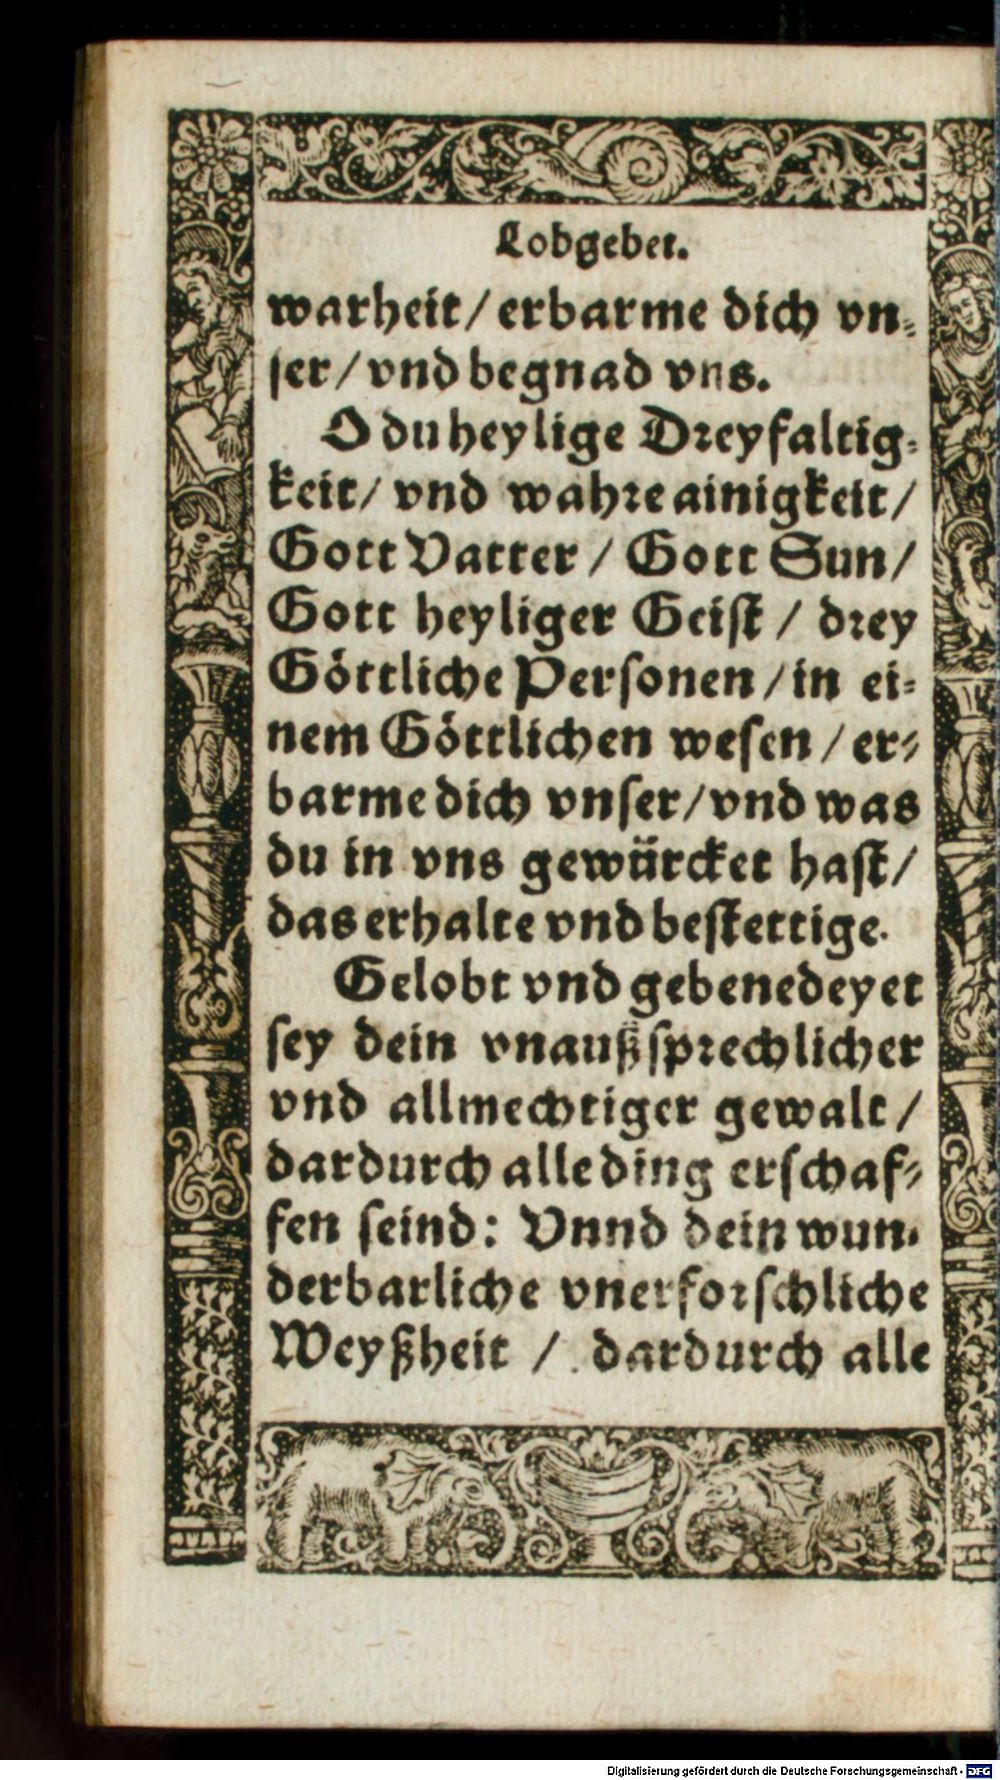 Lobgebet.
warheit/ erbarme dich vn⸗
ser/ vnd begnad vns.
O du heylige Dreyfaltig⸗
keit/ vnd wahre ainigkeit/
Gott Vatter / Gott Sun/
Gott heyliger Geist / drey
Göttliche Personen /in ei⸗
nem Göttlichen wesen / er⸗
barme dich vnser/ vnd was
du in vns gewürcket hast/
das erhalte vnd bestettige.
Gelobt vnd gebenedeyet
sey dein vnaußsprechlicher
vnd allmechtiger gewalt /
dardurch alle ding erschaf⸗
fen seind: Vnnd dein wun⸗
derbarliche vnerforschliche
Weyßheit / dardurch alle
Digitalisierung gefördert durch die Deutsche Forschungsgemeinschaft - DFG